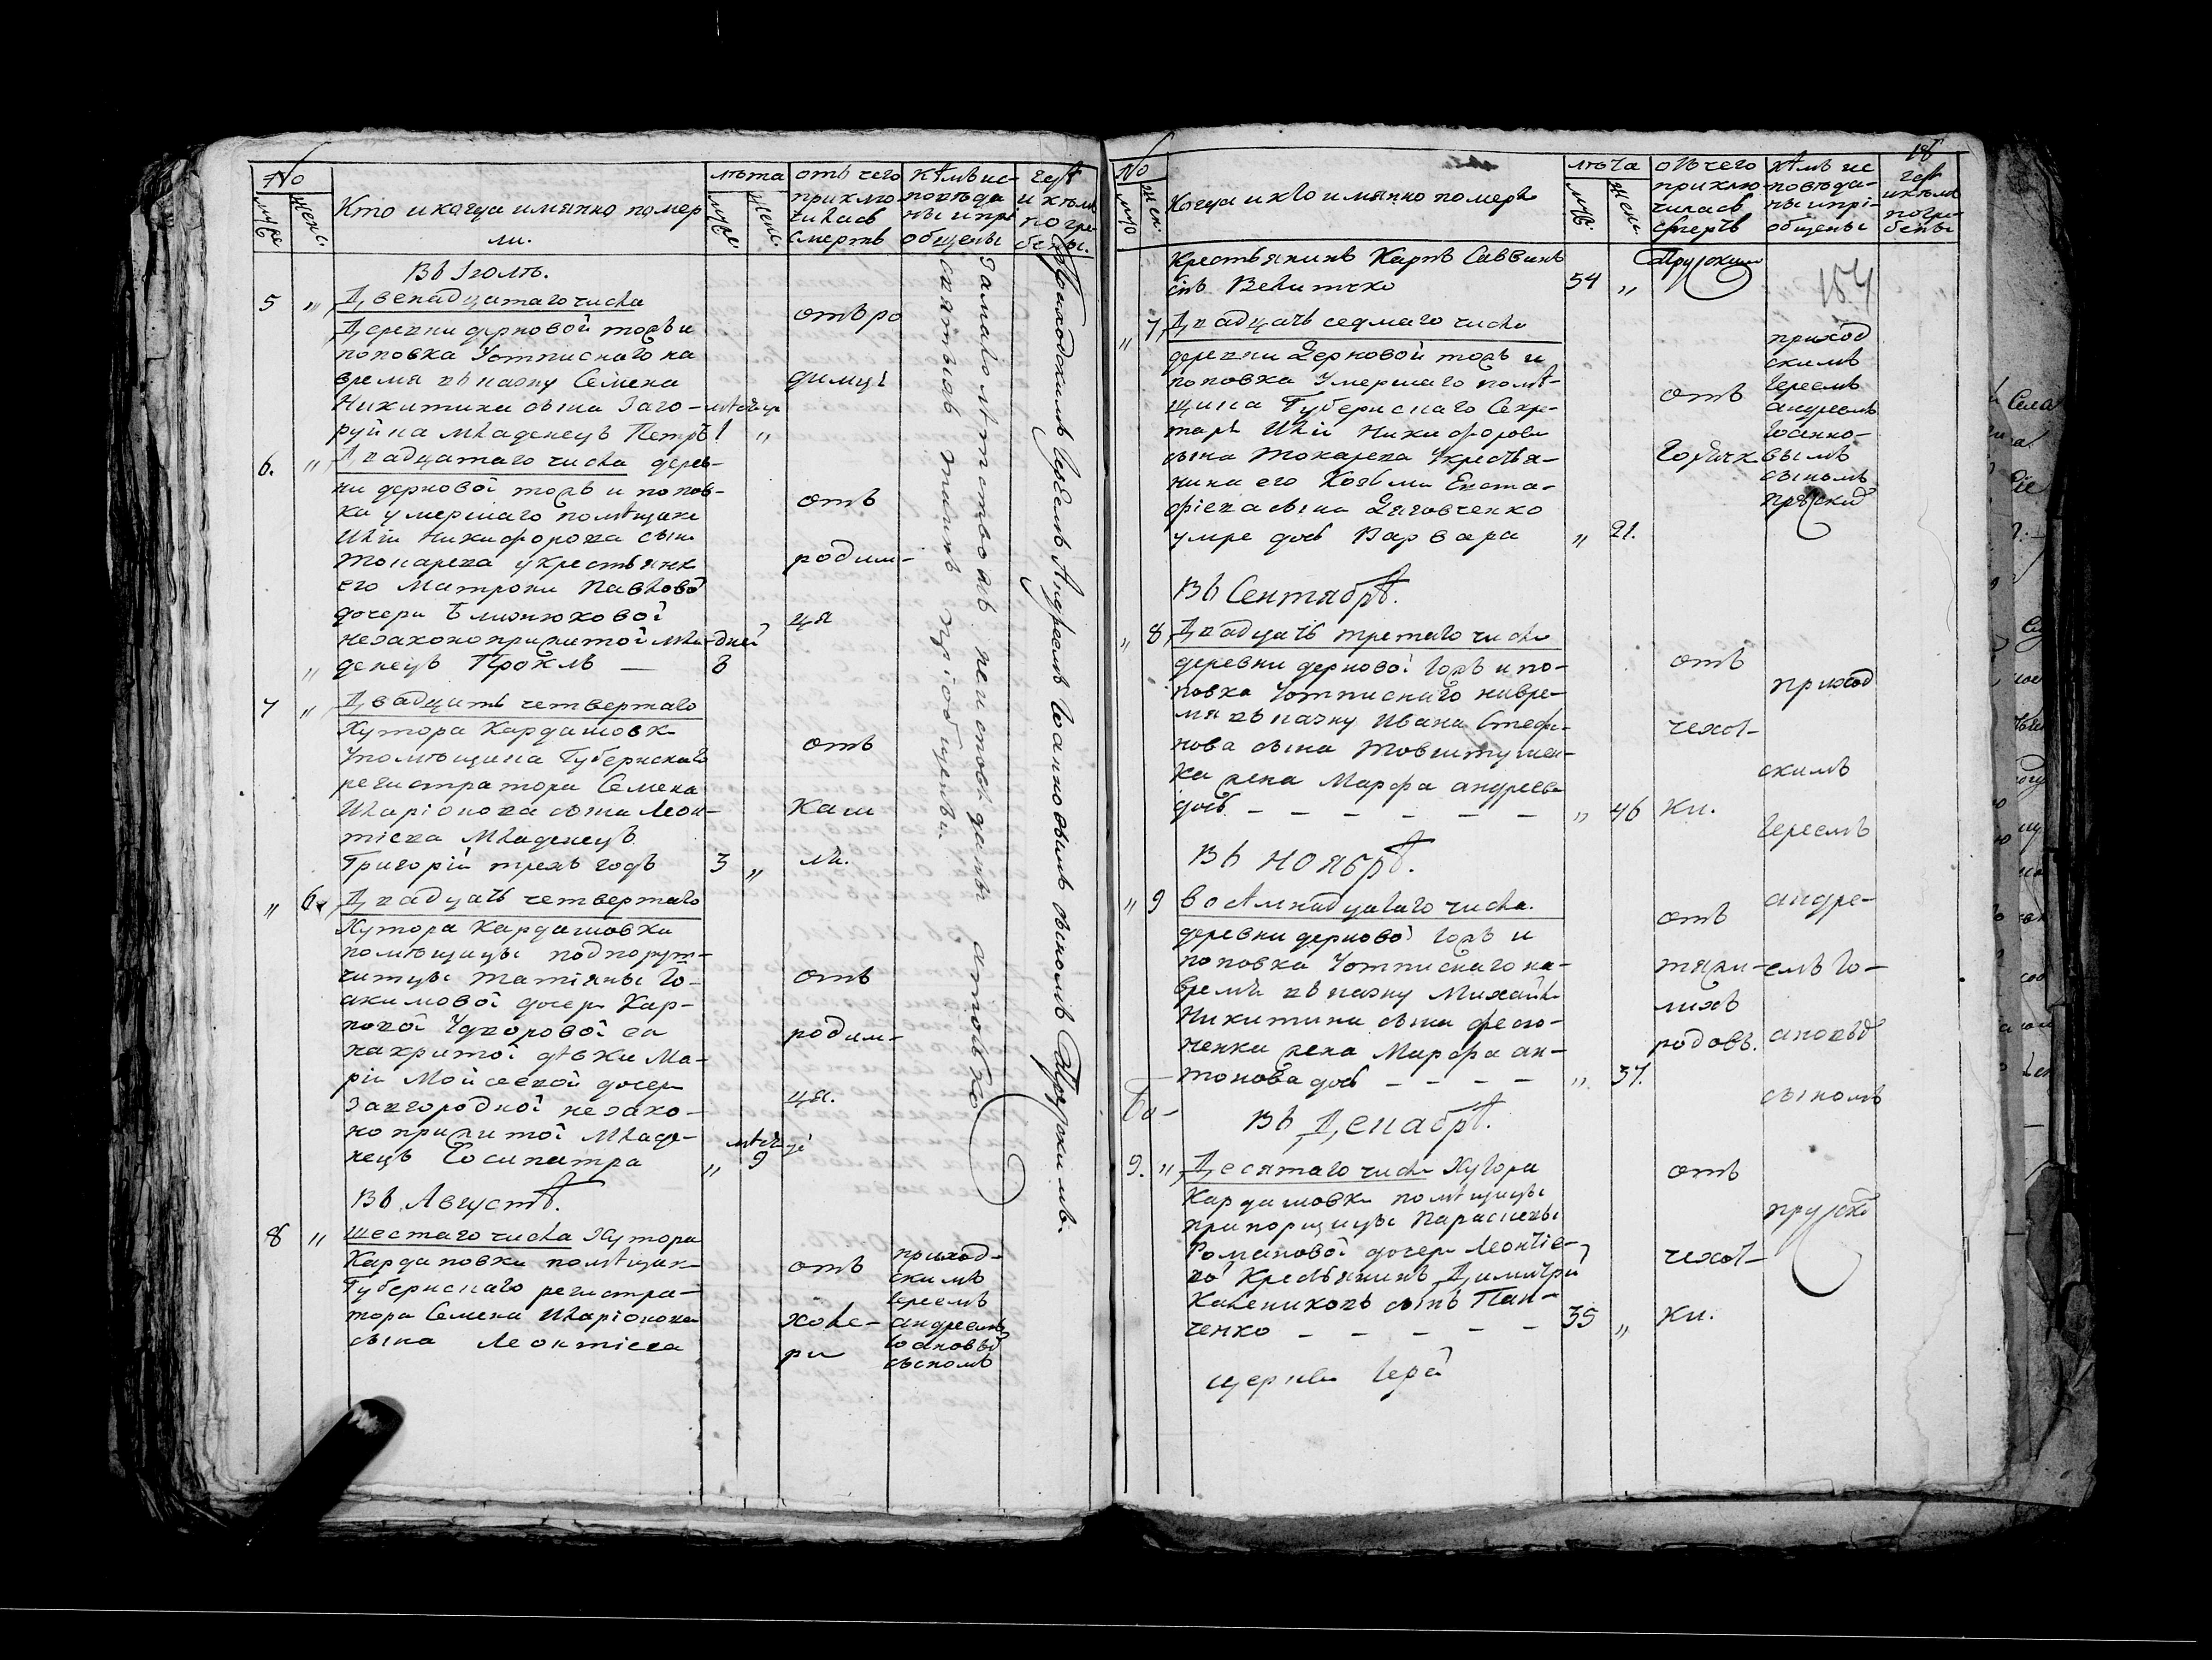 №
муж. женс.
Кто и когда имянно помер
ли.
лѣта
муж. женс.
отъ чего
приклю
чилась
смерть
кѣмъ ис-
повѣда
ны и прі
общены
гдѣ
и кѣмъ
погре
бены.
Въ Іюлѣ.
5 „ Двенадцатаго числа
Деревни дерновой толь и
поповка Уотписнаго на
время въ казну Семена
Никитина сына Заго-
руйка младенецъ Петръ 1 „
отъ ро
димца
6. „ Двадцатаго числа дерев-
ни дерновой толь и попов-
ка умершаго помѣщика
Иліи Никифорова сына
Токарева укрестьянк
его Матроны Павловой
дочери
незаконоприжитой мла-
денецъ Проклъ — дней 8
отъ
родим-
ца
7 „ Двадцать четвертаго
Хутора Кардашовк
Упомѣщика Губернскаго
регистратора Семена
Иларіонова сына Леон-
тіева младенецъ
Григорій трехъ годъ 3 „
отъ
каш
ля.
„ 6. Двадцать четвертаго
Хутора Кардашовки
помѣщицы подпорут-
чицы Татіяны Іо-
акимовой дочери Кар-
повой
накритой дѣвки Ма-
ріи Мойсеевой дочери
Завгородной незако-
ноприжитой младе-
нецъ Іосипатра „ 9
отъ
родим-
ца.
Въ Августѣ.
8 „ шестаго числа Хутора
Кардаповки помѣщик
Губернскаго регистра-
тора Семена Иларіонова
сына Леонтіева
отъ
холе-
ры
приход-
скимъ
іереемъ
андреемъ
Іоановы
сыномъ
замалолѣтствомъ неисповѣданы
святыхъ таинъ пріобщены.
приходскимъ Іереемъ Андреемъ Іоанновымъ сыномъ Прускимъ.
18
№
муж. жен.
Когда и кто имянно померъ
лѣта
муж. жен.
отъ чего
приклю-
чилась
смерть
кѣмъ ис
повѣда-
ны и прі-
общены
гдѣ
и кѣмъ
погре-
бены
154
крестьянинъ Карпъ Саввинъ
снъ Величко 54 „
„ 7 Двадцать седмаго числа
деревни Дерновой толь и
поповка Умершаго помѣ-
щика Губернскаго Секре-
таря Иліи Никифорова
сына Токарева Укрестья-
нина его Козьмы Евста-
фіева сына Дяговченко
умре дочь Варвара „ 21.
отъ
Горячк
приход
скимъ
Іереемъ
андреемъ
Іоанно-
вымъ
сыномъ
Въ Сентябрѣ.
„ 8 Двадцать третаго числа
деревни дерновой толь и по-
повка Уотписнаго навре-
мя въ казну Ивана Стефа-
нова сына Товштушен-
ка жена Марфа андреева
дочь. — — — — — — „ 46
отъ
чехот-
ки.
приход
скимъ
Іереемъ
Въ Ноябрѣ.
„ 9 восѣмнадцатаго числа.
деревни дерновой толь и
поповка Уотписнаго на-
время въ казну Михайла
Никитина сына Фесю-
ненка жена Марфа ан-
тонова дочь — — — — „ 37.
отъ
тяжи-
лихъ
родовъ.
андре-
емъ Іо-
сыномъ
Въ Декабрѣ.
9. „ Десятаго числа Хутора
Кардашовки помѣщицы
прапорщицы Параскевы
Романовой дочери Леонтіе-
во Крестьянинъ Димитрій
Калениковъ сынъ Пан-
ченко — — — — — 35 „
отъ
чехот-
ки.
церкви Іерей